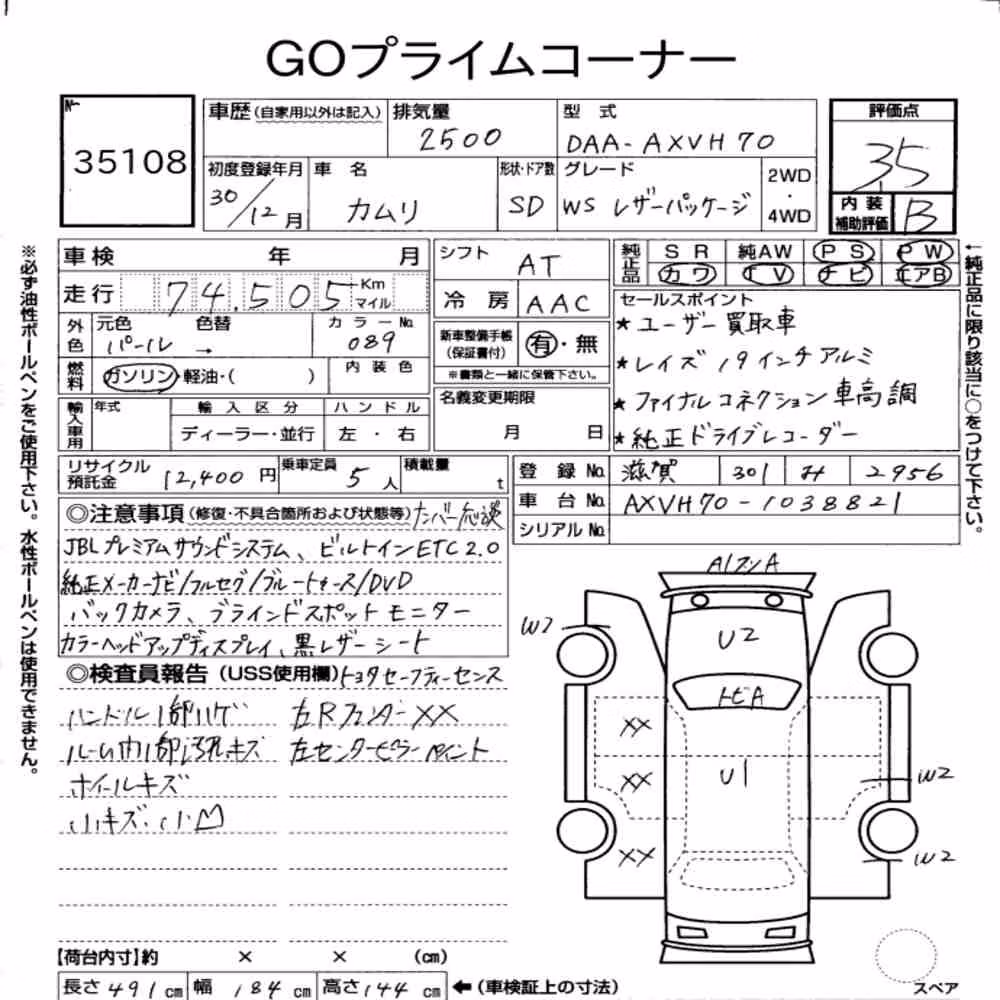 GOプライムコーナー
No.
35108
車歴(自家用以外は記入) 排気量 2500 型式 DAA-AXVH70
初度登録年月 30/12月 車名 カムリ 形状・ドア数 SD グレード WS レザーパッケージ 2WD・4WD
評価点 3.5
内装補助評価 B
車検 年 月
走行 74,505 Km マイル
外色 元色 パール 色替 → カラーNo. 089
燃料 ガソリン・軽油・( ) 内装色
輸入車用 年式 輸入区分 ディーラー・並行 ハンドル 左・右
シフト AT
冷房 AAC
新車整備手帳(保証書付) 有・無
※書類と一緒に保管下さい。
名義変更期限 月 日
純正品 SR 純AW PS PW
カワ TV ナビ エアB
セールスポイント
★ユーザー買取車
★レイズ19インチアルミ
★ファイナルコネクション車高調
★純正ドライブレコーダー
リサイクル預託金 12,400円 乗車定員 5人 積載量 t
登録No. 滋賀 301 2956
車台No. AXVH70-1038821
シリアルNo.
◎注意事項(修復・不具合箇所および状態等)ナンバー応談
JBLプレミアムサウンドシステム、ビルトインETC2.0
純正メーカーナビ/フルセグ/ブルートゥース/DVD
バックカメラ、ブラインドスポットモニター
カラーヘッドアップディスプレイ、黒レザーシート
◎検査員報告(USS使用欄)トヨタセーフティーセンス
ハンドル1部ハゲ 左RフェンダーXX
ルーム内1部汚れキズ 左センターピラーペイント
ホイールキズ
小キズ・小凹
A1 A
W2
U2
トビA
XX
XX
U1
W2
XX
W2
スペア
【荷台内寸】約 × × (cm)
長さ491cm 幅184cm 高さ144cm ←(車検証上の寸法)
※必ず油性ボールペンをご使用下さい。水性ボールペンは使用できません。
←純正品に限り該当に○をつけて下さい。